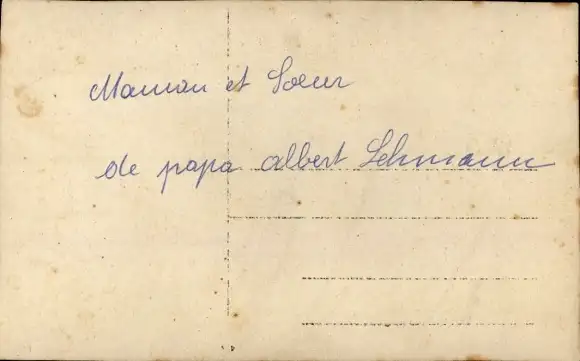 Maman et Soeur
de papa albert Lehmann